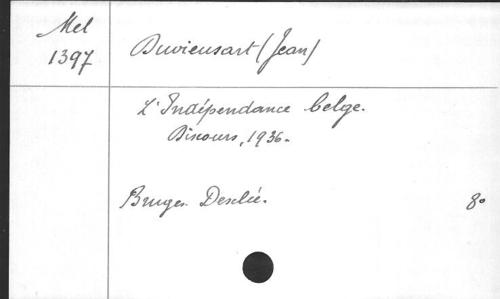 Mel
1397
Duvieusart (Jean)
L'Indépendance belge.
Discours, 1936.
Bruges. Desclée. 8°